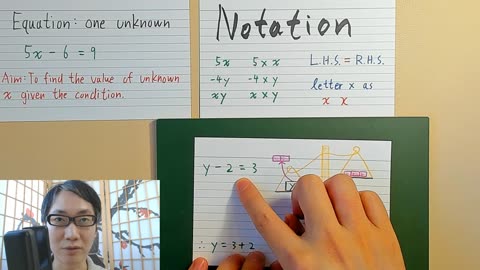 Equation: one unknown
5x - 6 = 9
Aim: To find the value of unknown
x given the condition.
Notation
5x 5 × x
-4y -4 × y
xy x × y
L.H.S. = R.H.S.
letter x as
x x
y - 2 = 3
∴ y = 3 + 2